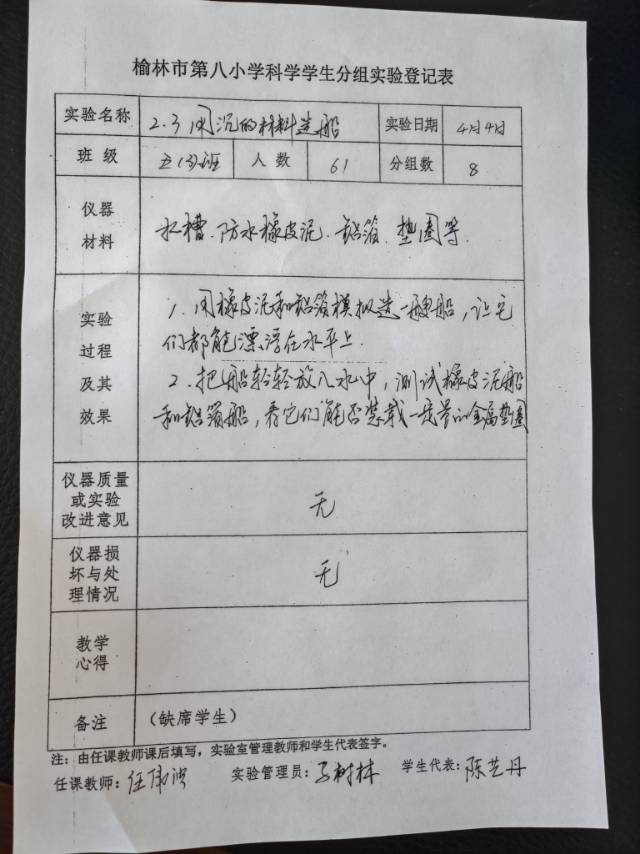 榆林市第八小学科学学生分组实验登记表
实验名称 2.3用沉的材料造船 实验日期 4月4日
班级 五(3)班 人数 61 分组数 8
仪器材料 水槽、防水橡皮泥、铝箔、垫圈等.
实验过程及其效果
1、用橡皮泥和铝箔模拟造一艘船，让它
们都能漂浮在水平上.
2、把船轻轻放入水中，测试橡皮泥船
和铝箔船，看它们能否装载一定量的金属垫圈
仪器质量或实验改进意见 无
仪器损坏与处理情况 无
教学心得
备注 (缺席学生)
注：由任课教师课后填写，实验室管理教师和学生代表签字。
任课教师：任 实验管理员：树林 学生代表：陈艺丹